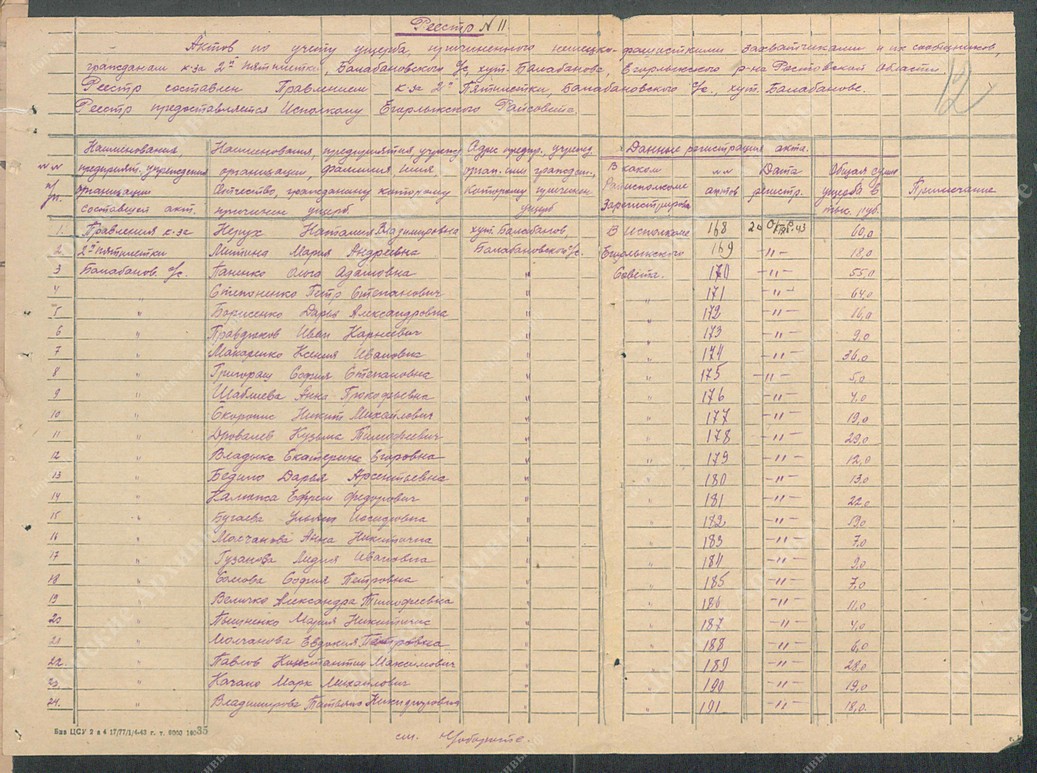 Реестр № 11.
Актов по учету ущерба, причиненного немецко-фашистскими захватчиками и их сообщников,
гражданам к-за 2й пятилетка, Балабановского с/с, хут. Балабанова, Егорлыкского р-на Ростовской области.
Реестр составлен Правлением к-за 2й Пятилетки, Балабановского с/с, хут. Балабанове.
Реестр предоставляется Исполкому Егорлыкского Райсовета.
12
№№ п/п. Наименования предприят. учреждения организации составившей акт. Наименования, предприятия учрежд организации, фамилия имя Отчество, гражданину которому причинен ущерб. Адрес предпр. учрежд орган. или граждан., Которому причинен ущерб Данные регистрации акта. В каком Райисполкоме Зарегистрирова №№ актов Дата регистр. Общая сумм ущерба в тыс. руб. Примечание
1. Правления к-за Нерух Наталия Владимировна хут. Балабанов, В Исполкоме 168 43 60,0
2. 2й пятилетки Митина Мария Андреевна Балабановской с/с. Егорлыкского 169 -"- 18,0
3 Балабанов. с/с. Панико Ольга Адамовна " Совета. 170 -"- 55,0
4 Степоненко Петр Степанович " " 171 -"- 64,0
5 " Борисенко Дарья Александровна " " 172 -"- 16,0
6 " Правдюков Иван Карнеевич " " 173 -"- 9,0
7 " Макаренко Ксения Ивановна " " 174 -"- 36,0
8 " Григораш София Степановна " " 175 -"- 5,0
9 " Шаблиева Анна Прокофьевна " " 176 -"- 4,0
10 " Скоропис Никит Михайлович " " 177 -"- 19,0
11 " Дровалев Кузьма Тимофеевич " " 178 -"- 29,0
12 " Владыка Екатерина Егоровна " " 179 -"- 12,0
13 " Бедило Дарья Арсентиевна " " 180 -"- 13,0
14 " Ефрем Федорович " " 181 -"- 22,0
15 " Бугаева Ульяна " " 182 -"- 19,0
16 " Молчанова Анна Никитична " " 183 -"- 7,0
17 " Гузанова Лидия Ивановна " " 184 -"- 9,0
18 " Сомова София Петровна " " 185 -"- 7,0
19 " Величко Александра Тимофеевна " " 186 -"- 11,0
20 " Пышненко Мария Никитична " " 187 -"- 4,0
21 " Молчанова Евдокия Петровна " " 188 -"- 6,0
22. " Павлов Константин Максимович " " 189 -"- 28,0
23 " Качано Марк Михайлович " " 190 -"- 19,0
24. " Владимирова Татьяна Никифоровна " " 191 -"- 18,0
Биз ЦСУ 2 в 4 17/77/1/4-43 г. т. 6000
35
см. на обороте.